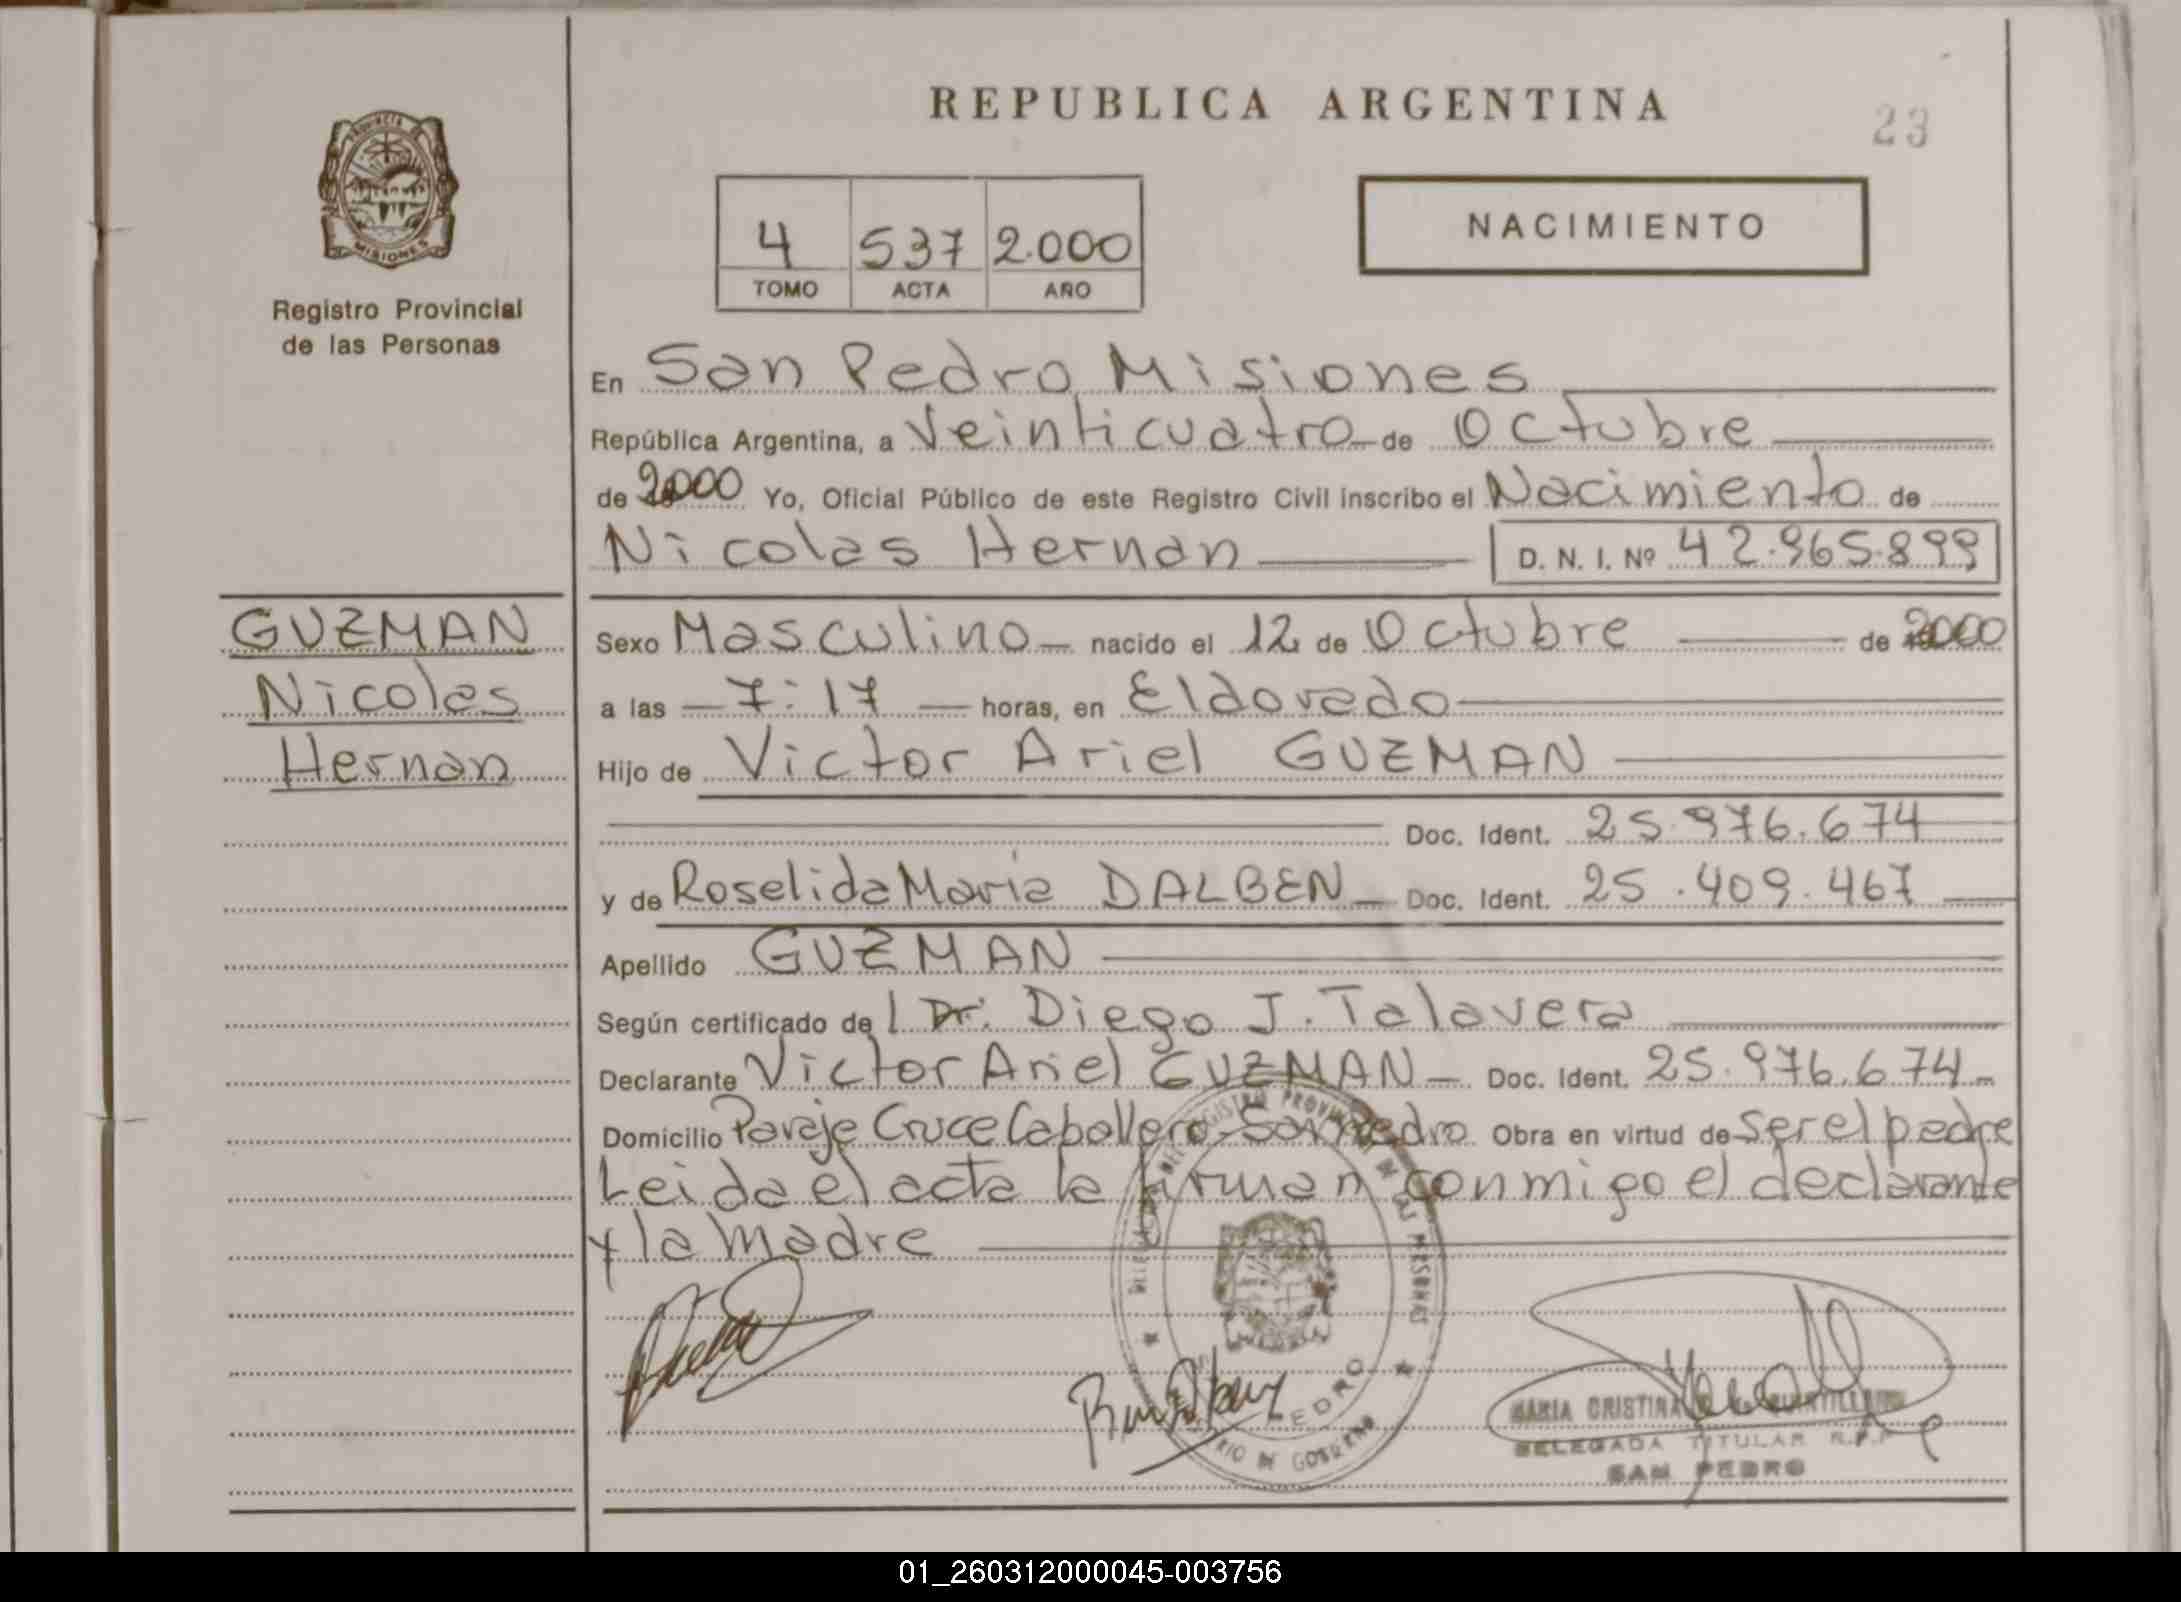 REPUBLICA ARGENTINA
23
PROVINCIA DE
MISIONES
Registro Provincial
de las Personas
4 537 2.000
TOMO ACTA AÑO
NACIMIENTO
En San Pedro Misiones
República Argentina, a Veinticuatro de Octubre
de 2000 Yo, Oficial Público de este Registro Civil inscribo el Nacimiento de
Nicolas Hernan D. N. I. Nº 42.965.899
GUZMAN
Nicolas
Hernan
Sexo Masculino nacido el 12 de Octubre de 2000
a las 7:17 horas, en Eldorado
Hijo de Victor Ariel GUZMAN
Doc. Ident. 25.976.674
y de Roselida Maria DALBEN Doc. Ident. 25.409.467
Apellido GUZMAN
Según certificado del Dr. Diego J. Talavera
Declarante Victor Ariel GUZMAN Doc. Ident. 25.976.674
Domicilio Paraje Cruce Caballero-San Pedro Obra en virtud de ser el padre
Leida el acta la firman conmigo el declarante
y la madre
REGISTRO PROVINCIAL DE LAS PERSONAS
PEDRO
DE GOBIERNO
MARIA CRISTINA
DELEGADA TITULAR R.P.P
SAN PEDRO
01_260312000045-003756